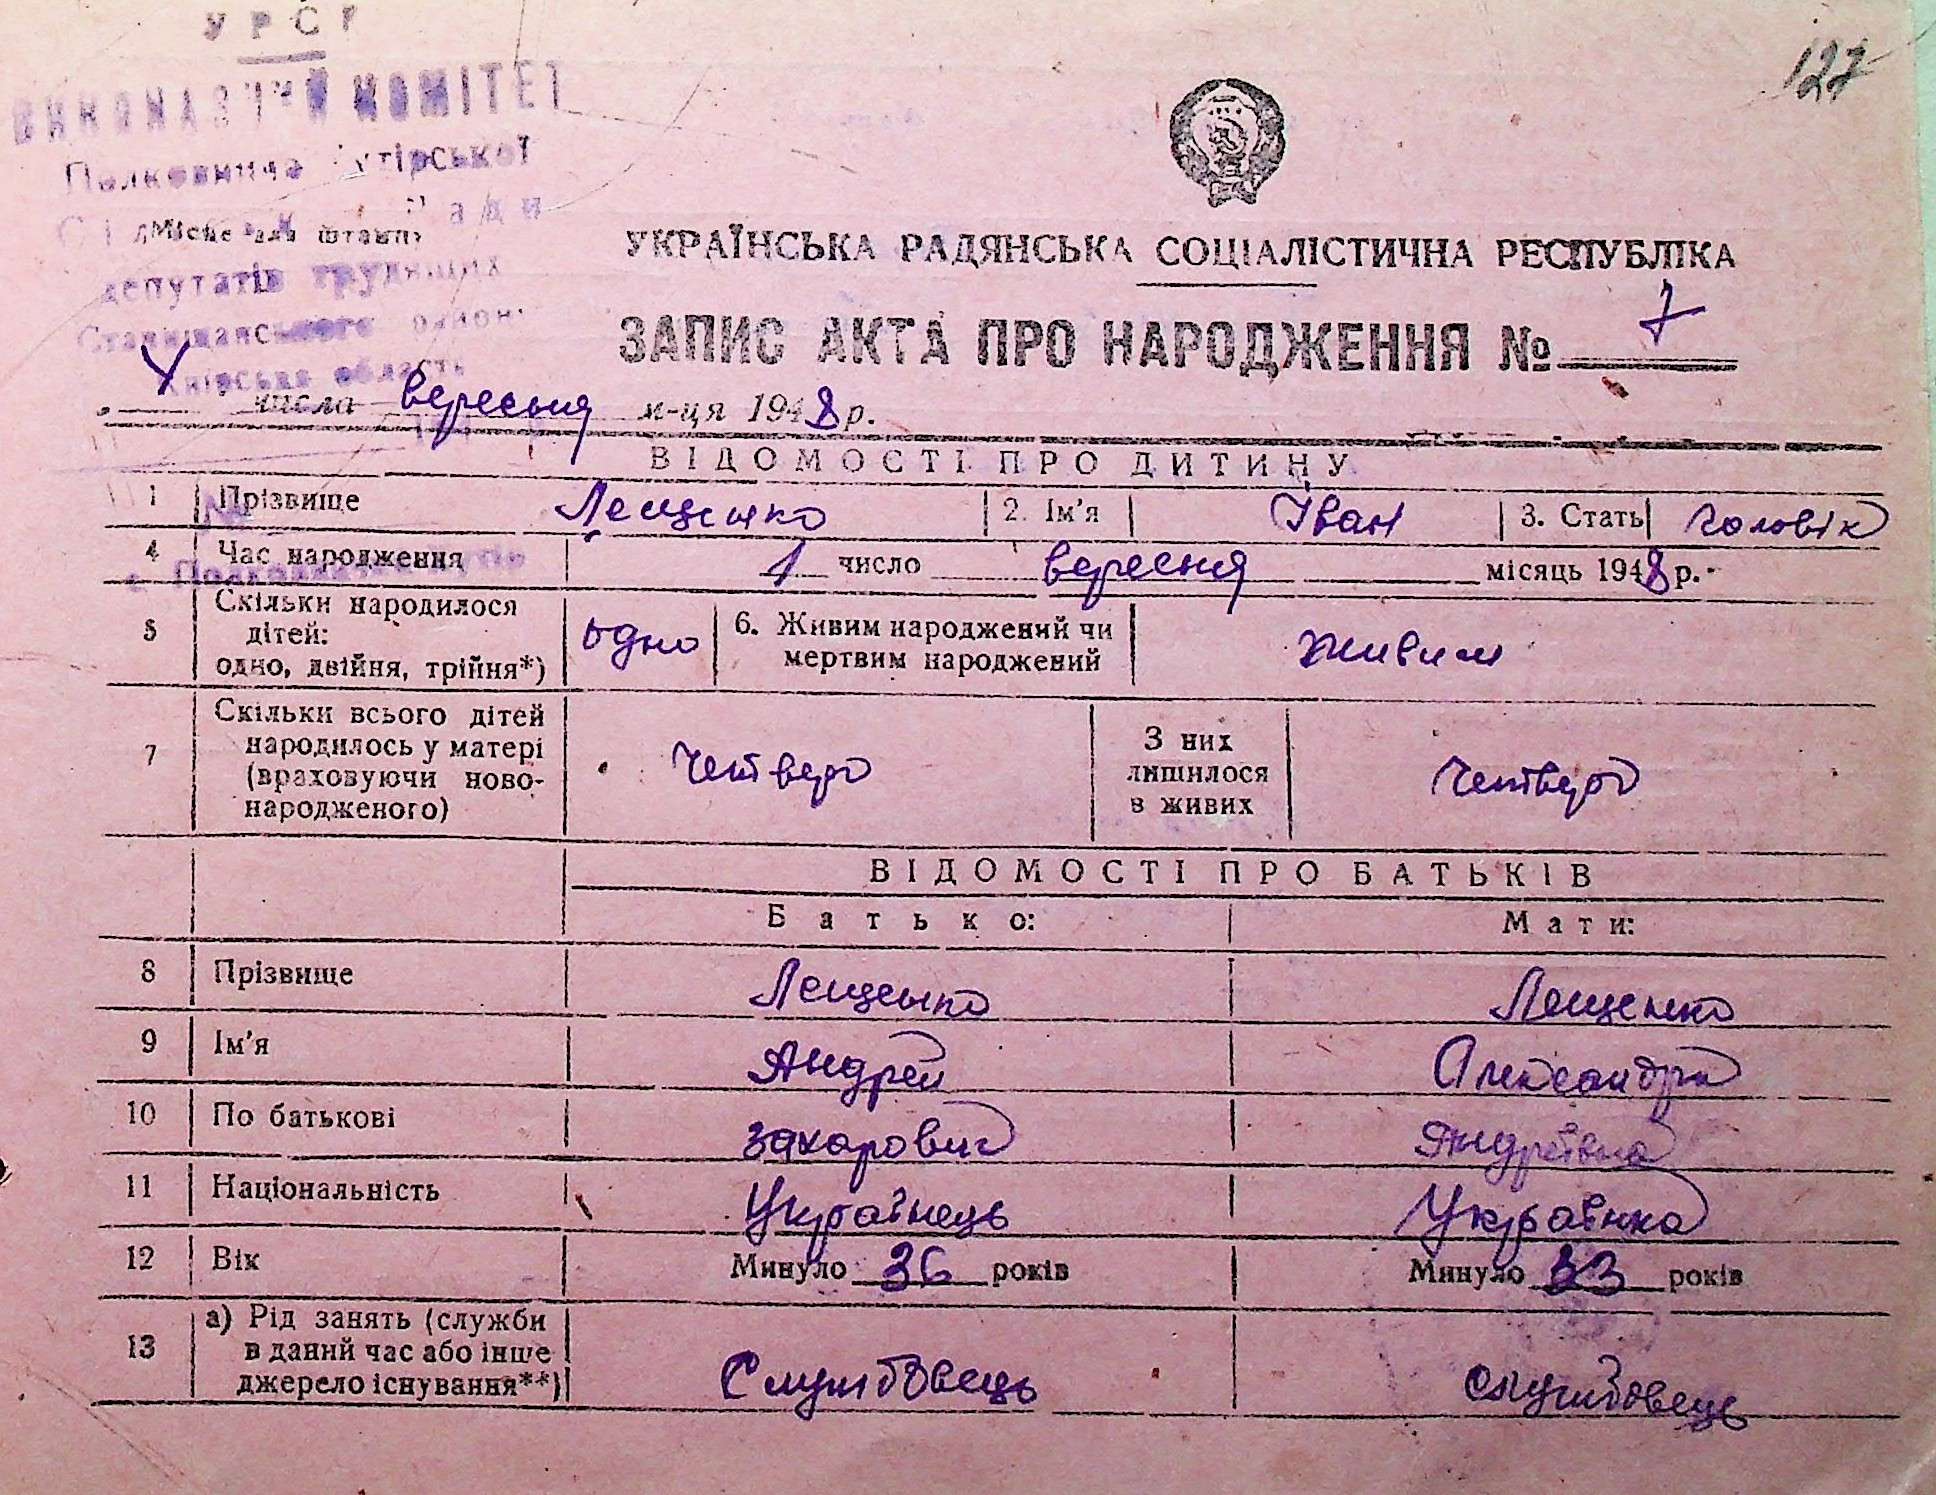 УРСР
127
ВИКОНАВЧИЙ КОМІТЕТ
Полковниче Хутірської
Місце для штампу
депутатів трудящих
Ставищанського району
Київська область
УКРАЇНСЬКА РАДЯНСЬКА СОЦІАЛІСТИЧНА РЕСПУБЛІКА
ЗАПИС АКТА ПРО НАРОДЖЕННЯ № 7
числа вересня м-ця 1948 р.
ВІДОМОСТІ ПРО ДИТИНУ
1 Прізвище Лещенко 2. Ім'я Іван 3. Стать чоловік
4 Час народження 1 число вересня місяць 1948 р.
5 Скільки народилося дітей: одно, двійня, трійня*) одно 6. Живим народжений чи мертвим народжений живим
7 Скільки всього дітей народилось у матері (враховуючи ново-народженого) четверо З них лишилося в живих четверо
ВІДОМОСТІ ПРО БАТЬКІВ
Батько: Мати:
8 Прізвище Лещенко Лещенко
9 Ім'я Андрей Александра
10 По батькові Захарович Андреївна
11 Національність Українець Українка
12 Вік Минуло 36 років Минуло 33 років
13 а) Рід занять (служби в даний час або інше джерело існування**) Службовець службовець